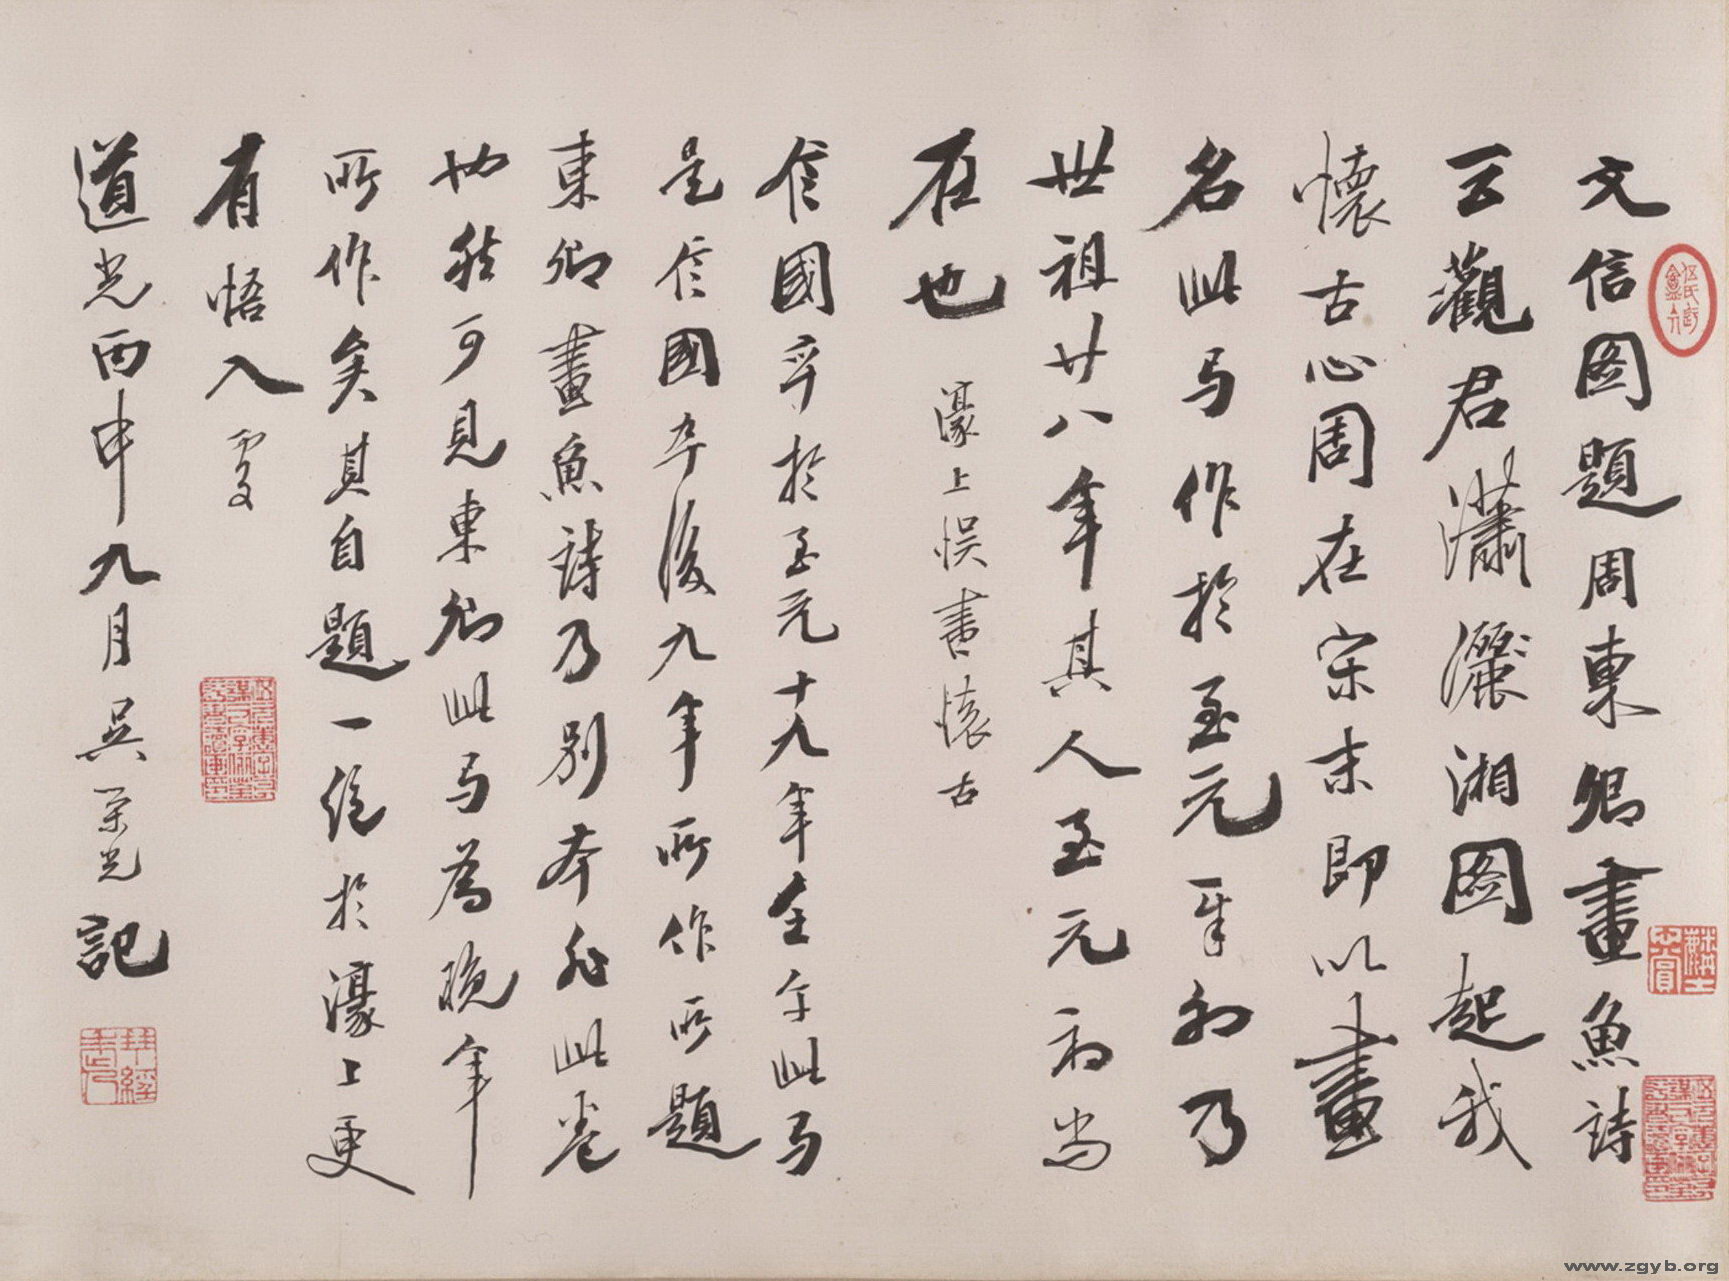 文信國題周東卿畫魚詩
云觀君瀟灑湘圖起我
懷古心周在宋末即以畫
名此弓作於至元辛卯乃
世祖廿八年其人至元初尚
在也 濠上悞書懷古
信國卒於至元十九年壬午此弓
是信國卒後九年所作所題
東卿畫魚詩乃別本非此卷
也然可見東卿此弓為晚年
所作矣其自題一絕於濠上更
有悟入處
道光丙申九月吳榮光記
www.zgyb.org